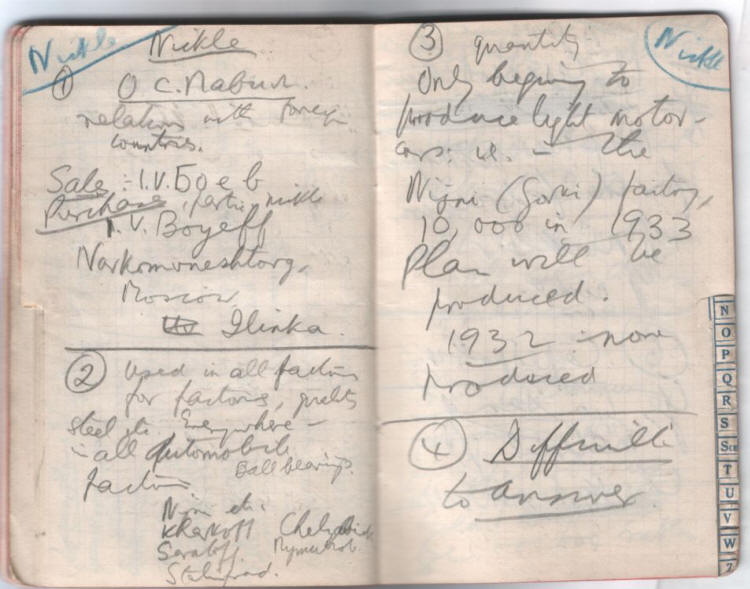 Nickle
Nickle
① O C. Nabut.
relations with foreign
countries.
Sale :- I.V. Боев
Purchase, nickle
I. V. Boyeff
Narkomvneshtorg,
Moscow
Ilinka.
② Used in all factories
for factories, quality
steel etc. Everywhere –
in all automobile
Ball bearings.
factories.
etc.
Kharkoff
Saratoff.
Stalingrad.
③ quantity
Only beginning to
produce light motor-
cars. i.e. – the
Nijni (Gorki) factory,
10,000 in 1933
Plan will be
produced.
1932 none
produced
④ Difficult
to answer.
Nickle
N
O
P
Q
R
S
T
U
V
W